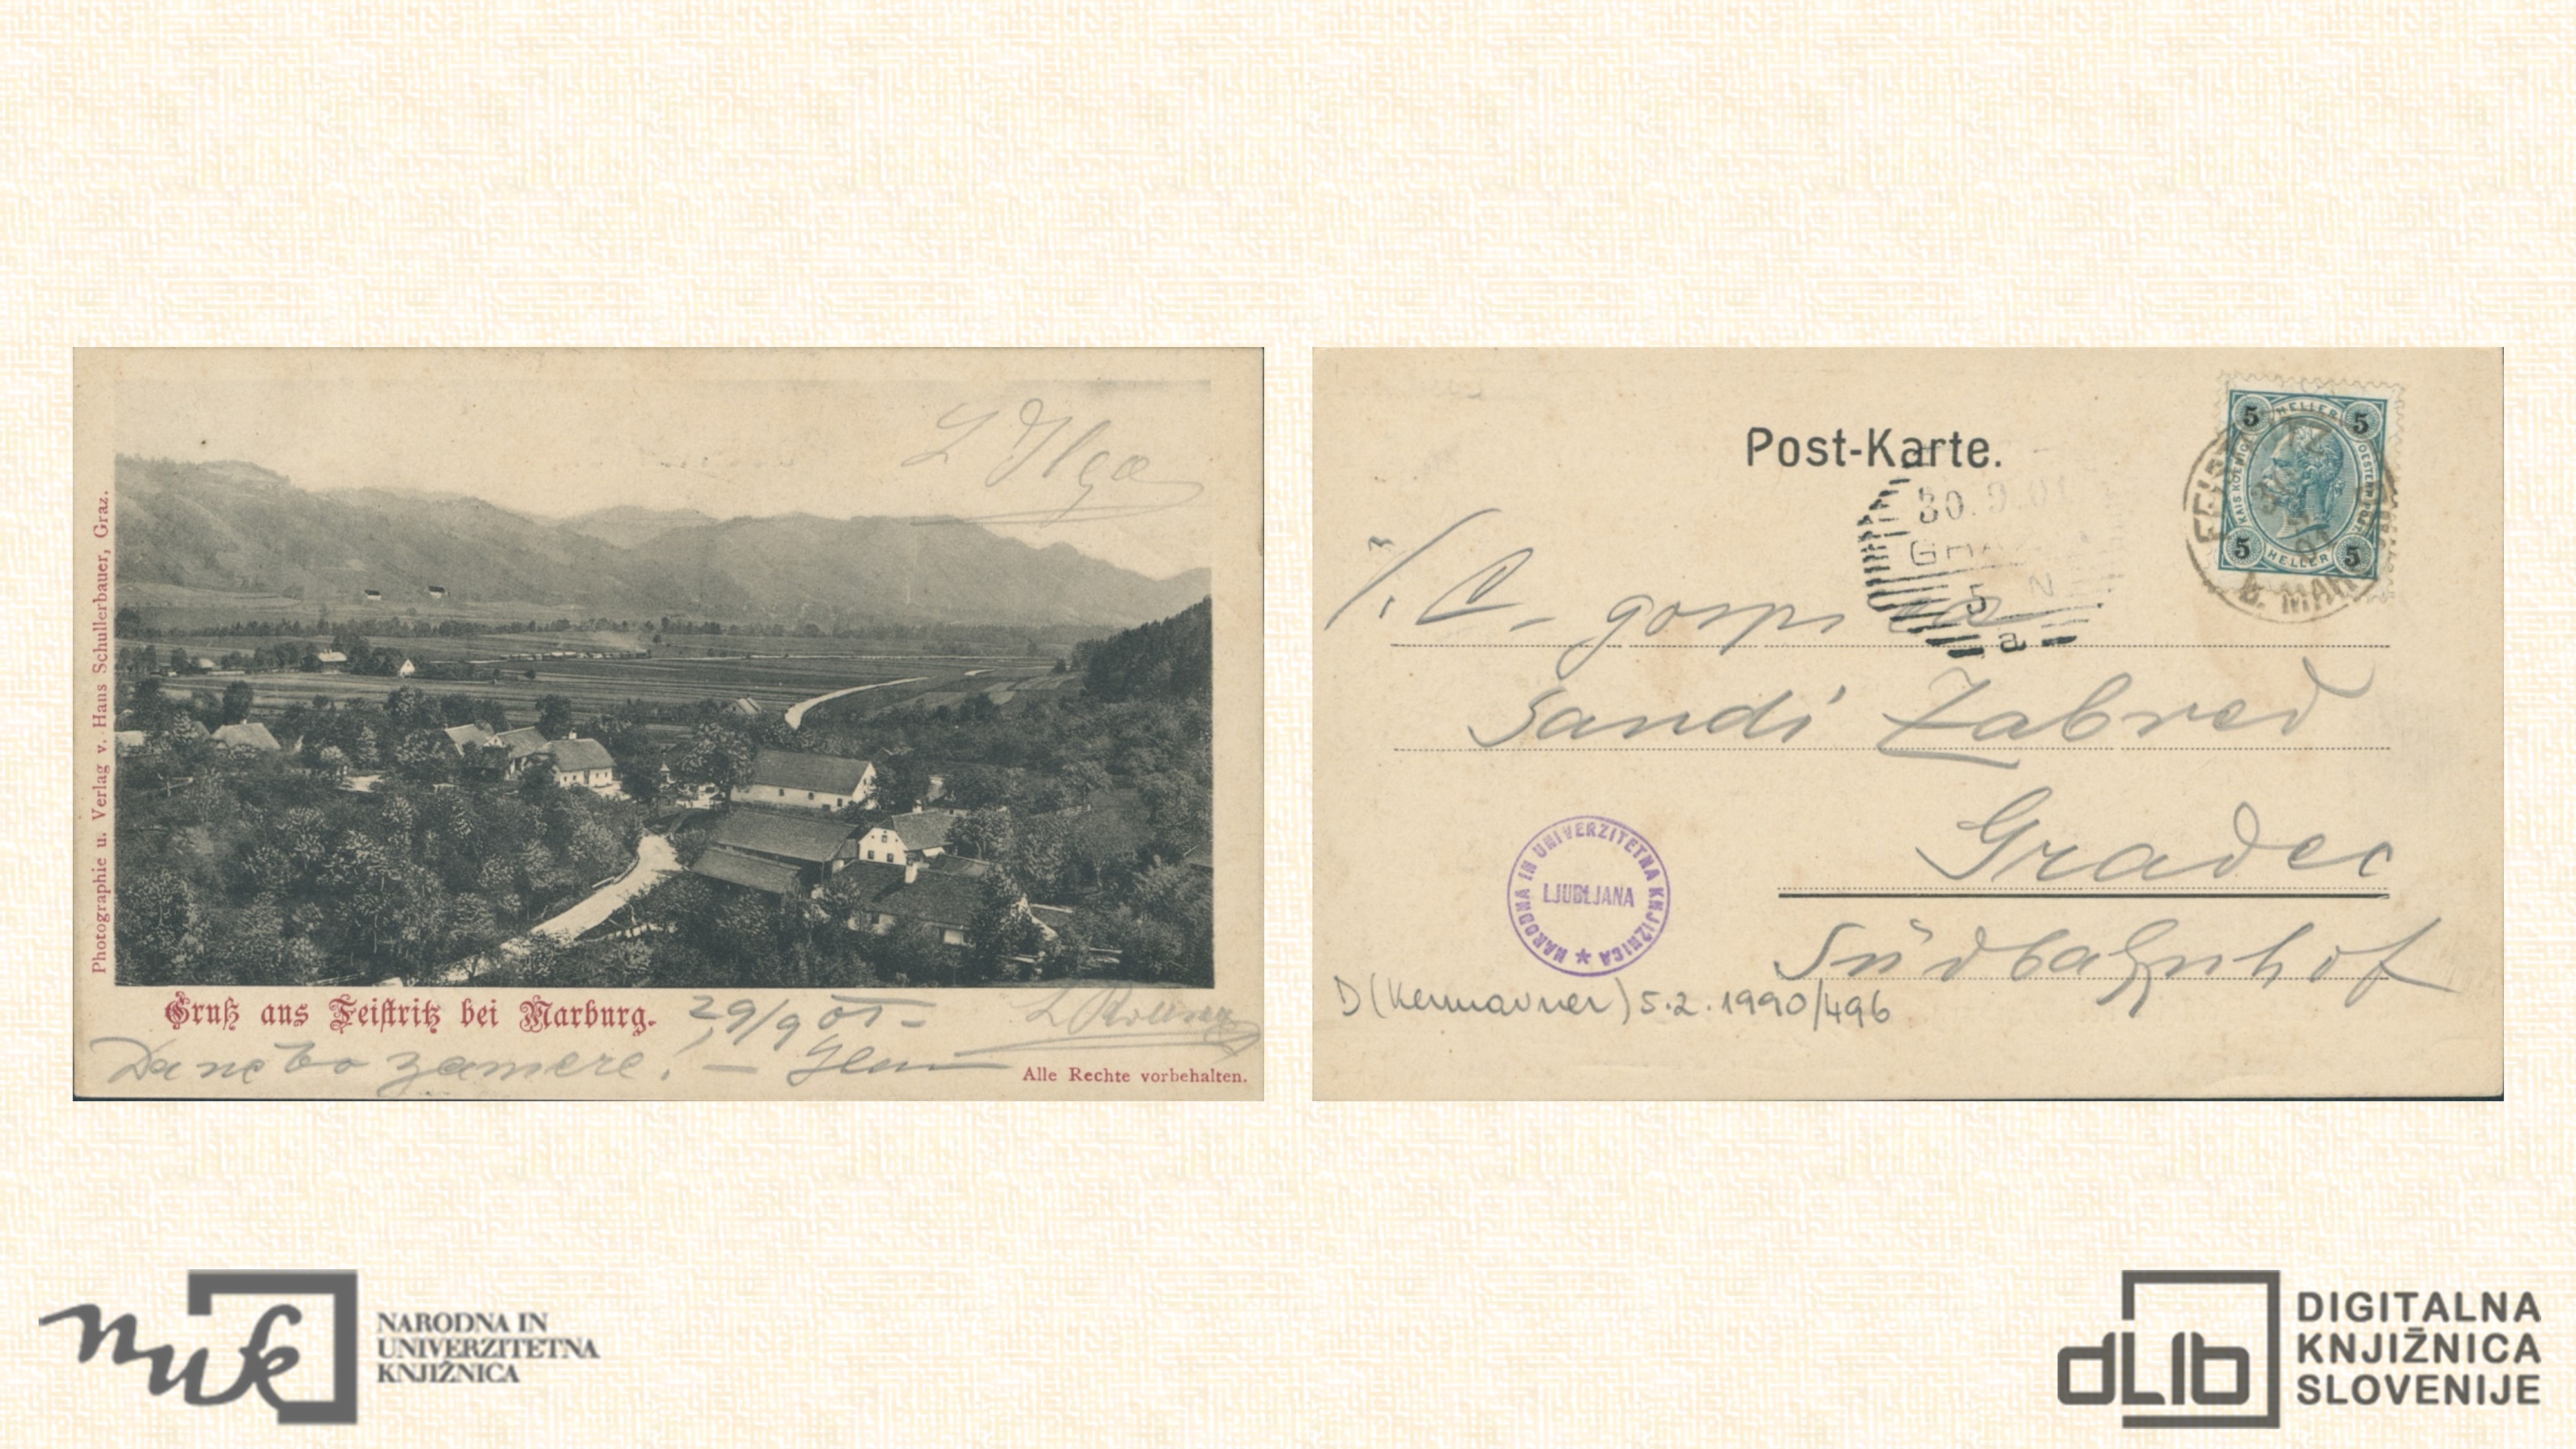 Photographie u. Verlag v. Hans Schullerbauer, Graz.
L Olga
Gruß aus Feistritz bei Marburg. 29/9 01 -
Da ne bo zamere! -
Alle Rechte vorbehalten.
Post-Karte.
5 HELLER 5
KAIS KOENIGL OESTERR POST
5 HELLER 5
30.9.01
5 N
a
B. MAR
gospica
Sandi Zabred
Gradec
Südbahnhof
NARODNA IN UNIVERZITETNA KNJIŽNICA ★
LJUBLJANA
D (Kermavner) 5.2.1990/496
nuk
NARODNA IN
UNIVERZITETNA
KNJIŽNICA
dLib
DIGITALNA
KNJIŽNICA
SLOVENIJE